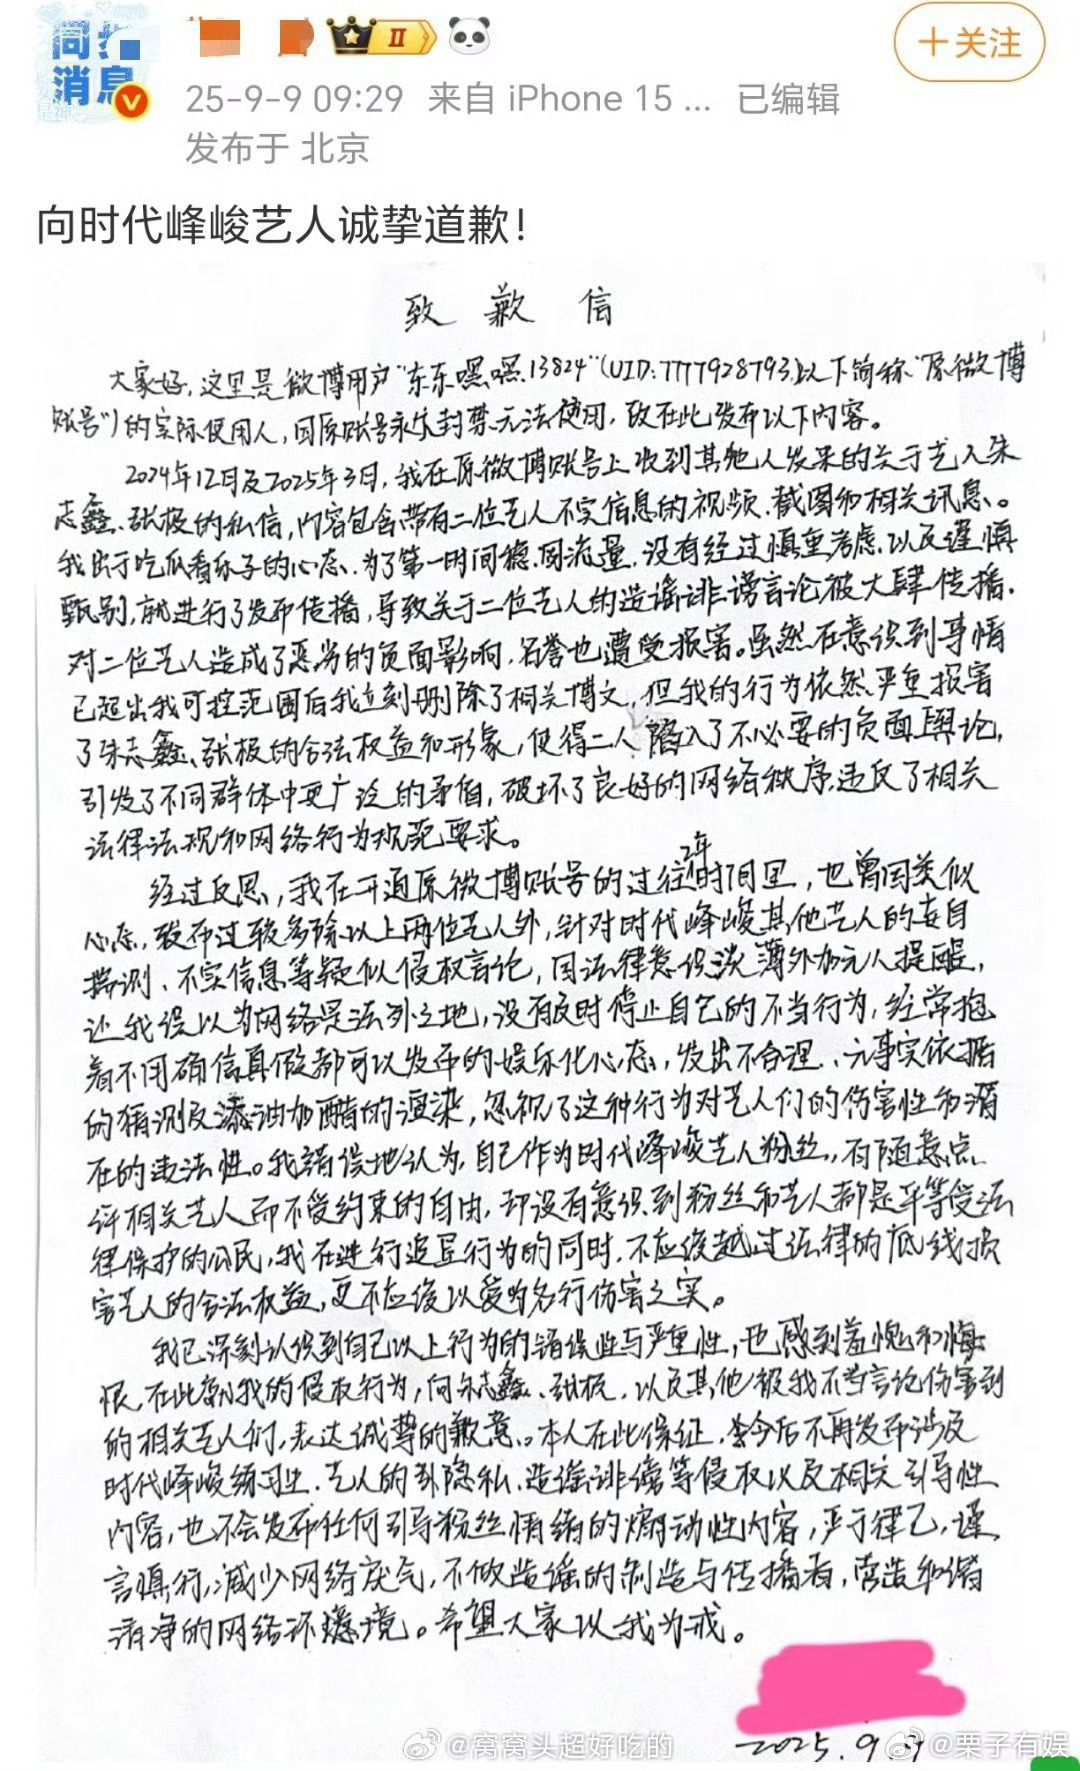 同担
消息
II
+关注
25-9-9 09:29 来自 iPhone 15 ... 已编辑
发布于 北京
向时代峰峻艺人诚挚道歉！
致歉信
大家好，这里是微博用户"东东嘿嘿13824"(UID:7777928793，以下简称"原微博
账号")的实际使用人，因原账号永久封禁无法使用，故在此发布以下内容。
2024年12月及2025年3月，我在原微博账号上收到其他人发来的关于艺人朱
志鑫、张极的私信，内容包含带有二位艺人不实信息的视频、截图和相关讯息。
我出于吃瓜看乐子的心态、为了第一时间稳固流量，没有经过慎重考虑，以及谨慎
甄别，就进行了发布传播，导致关于二位艺人的造谣诽谤言论被大肆传播，
对二位艺人造成了恶劣的负面影响，名誉也遭受损害。虽然在意识到事情
已超出我可控范围后我立刻删除了相关博文，但我的行为依然严重损害
了朱志鑫、张极的合法权益和形象，使得二人陷入了不必要的负面舆论，
引发了不同群体中更广泛的矛盾，破坏了良好的网络秩序，违反了相关
法律法规和网络行为规范要求。
经过反思，我在开通原微博账号的过往2年时间里，也曾因类似
心态，发布过较多除以上两位艺人外，针对时代峰峻其他艺人的妄自
揣测、不实信息等疑似侵权言论，因法律意识淡薄外加无人提醒，
让我误以为网络是法外之地，没有及时停止自己的不当行为，经常抱
着不用确信真假都可以发布的娱乐化心态，发出不合理、无事实依据
的猜测及添油加醋的渲染，忽视了这种行为对艺人们的伤害性和潜
在的违法性。我错误地认为，自己作为时代峰峻艺人粉丝，有随意点
评相关艺人而不受约束的自由，却没有意识到粉丝和艺人都是平等受法
律保护的公民，我在进行追星行为的同时，不应该越过法律的底线损
害艺人的合法权益，更不应该以爱为名行伤害之实。
我已深刻认识到自己以上行为的错误性与严重性，也感到羞愧和悔
恨，在此就我的侵权行为，向朱志鑫、张极，以及其他被我不当言论伤害到
的相关艺人们，表达诚挚的歉意。本人在此保证，至今后不再发布涉及
时代峰峻练习生、艺人的非隐私、造谣诽谤等侵权以及相关引导性
内容，也不会发布任何引导粉丝情绪的煽动性内容，严于律己，谨
言慎行，减少网络戾气，不做造谣的制造与传播者，营造和谐
清净的网络环境。希望大家以我为戒。
2025.9.9
@窝窝头超好吃的
@栗子有娱